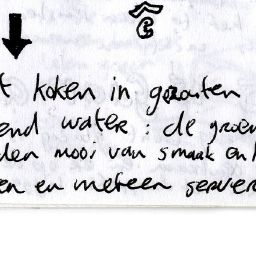 t koken in gezouten
end water : de groen
den mooi van smaak en k
en en meteen server